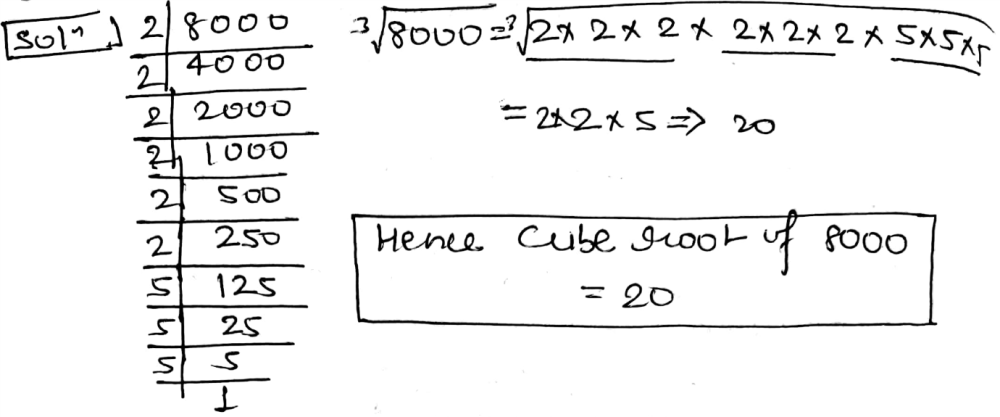 Solⁿ
2 | 8000
2 | 4000
2 | 2000
2 | 1000
2 | 500
2 | 250
5 | 125
5 | 25
5 | 5
1
∛8000 = ∛2× 2× 2 × 2× 2× 2 × 5×5×5
= 2×2×5 ⇒ 20
Hence Cube root of 8000
= 20